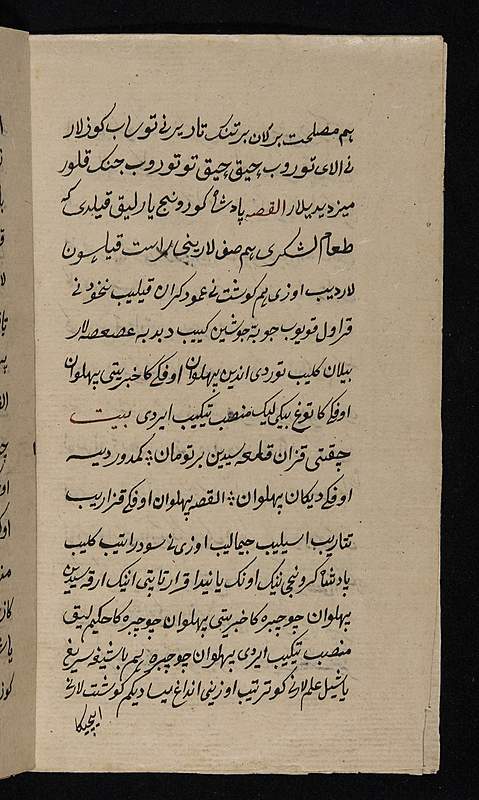 هم مصلحت بر کلان بر تنک تادیرنی توراب کوزلار
نی الای توروب چیق چیق تو توروب جنک قلور
میز دیدیلار القصه پادشاه کورونیج یارلیق قیلدی که
طعام لشکری هم صف لارینی راست قیلسون
لار دیب اوزی هم کوشت نی عمود کران قیلیب نخود نی
قراول قویوب جوبه جوشین کییب دبدبه عصعصه لار
بیلان کلیب توردی اندین پهلوان اوفکه کا خبر یتی پهلوان
اوفکه کا توغ بیکی لیک منصب تیکیب ایردی بیت
چقتی قزان قلعه سیدین بر تومان کمدور دیسه
اوفکه دیکان پهلوان القصه پهلوان اوفکه قزاریب
تتاریب اسیلیب جیمالیب اوزی نی سودراتیب کلیب
پادشاه کرونجی نینک اونک یانیدا قرار تاپتی انینک ارقه سیدین
پهلوان چوجبره کا خبر یتی پهلوان چوجبره کا حکیم لیق
منصب تیکیب ایردی پهلوان چوجبره هم باشیغه سریغ
یاشیل علم لارنی کوترتیب اوزینی انداغ یسادیکم کوشت لارنی
ایچیکا